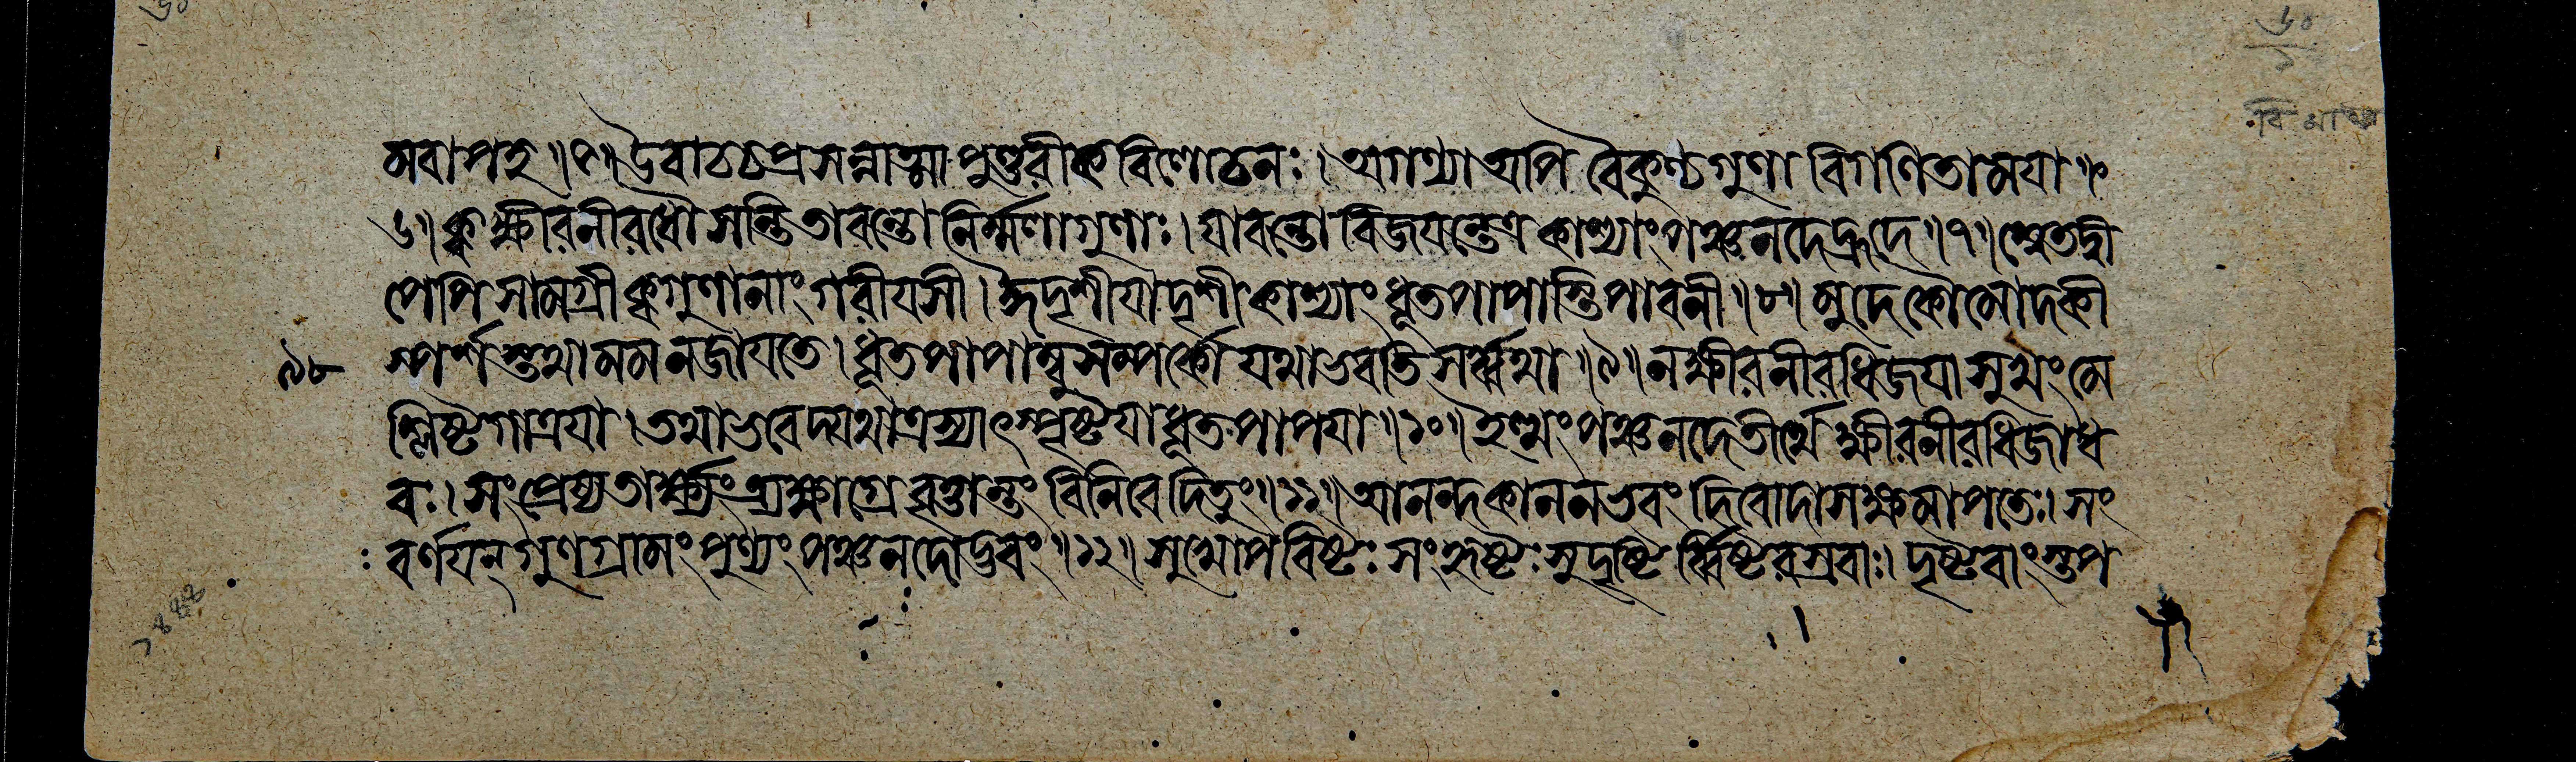 মবাপহ ॥৫॥ দৈবাঠঠপ্রসন্নাত্মা পুণ্ডরীকবিলোচনঃ। অগণ্যা অপি বৈকুণ্ঠগুণা বিগণিতা ময়া ॥
৬॥ ক্ব ক্ষীরনীরধৌ সন্তি তাবন্তো নির্ম্মলা গুণাঃ। যাবন্তো বিজয়ন্তেত্র কাশ্যাং পঞ্চনদে হ্রদে ॥৭॥ শ্বেতদ্বী
পেপি সামগ্রী ক্ব গুণানাং গরীয়সী। ঈদৃশী যাদৃশী কাশ্যাং ধূতপাপাস্তি পাবনী ॥৮॥ মুদে কৌমোদকী
স্পর্শস্তথা মম ন জায়তে। ধূতপাপাম্বুসম্পর্কো যথা ভবতি সর্ব্বথা ॥৯॥ ন ক্ষীরনীরধিজয়া সুখং মে
৯৮
শ্লিষ্টগাত্রয়া। তথা ভবেদ্যথাত্র স্যাৎ স্পৃষ্টয়া ধূতপাপয়া ॥১০॥ ইত্থং পঞ্চনদে তীর্থে ক্ষীরনীরধিজাধ
বঃ। সংপ্রেষ্য তার্ক্ষ্যং ত্র্যক্ষাগ্রে বৃত্তান্তং বিনিবেদিতুং ॥১১॥ আনন্দকাননভবং দিবোদাসক্ষমাপতেঃ। সং
বর্ণয়ন্ গুণগ্রামং পুণ্যং পঞ্চনদোদ্ভবং ॥১২॥ সুখোপবিষ্টঃ সংহৃষ্টঃ সুদৃষ্টির্ব্বিষ্টরশ্রবাঃ। দৃষ্টবাংস্তপ